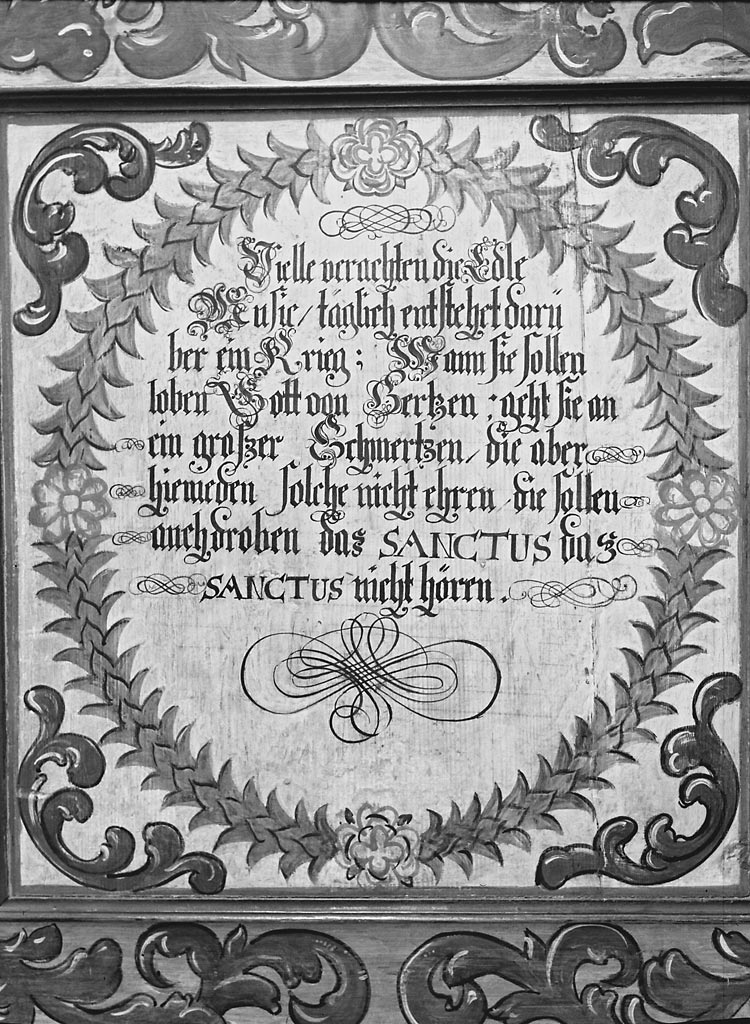 Vielle verachten die Edle
Music/ täglich entstehet darü
ber ein Krieg; Wann sie sollen
loben Gott von Hertzen; geht sie an
ein groszer Schmertzen/ die aber
hienieden solche nicht ehren die sollen
auch droben das SANCTUS das
SANCTUS nicht hören.